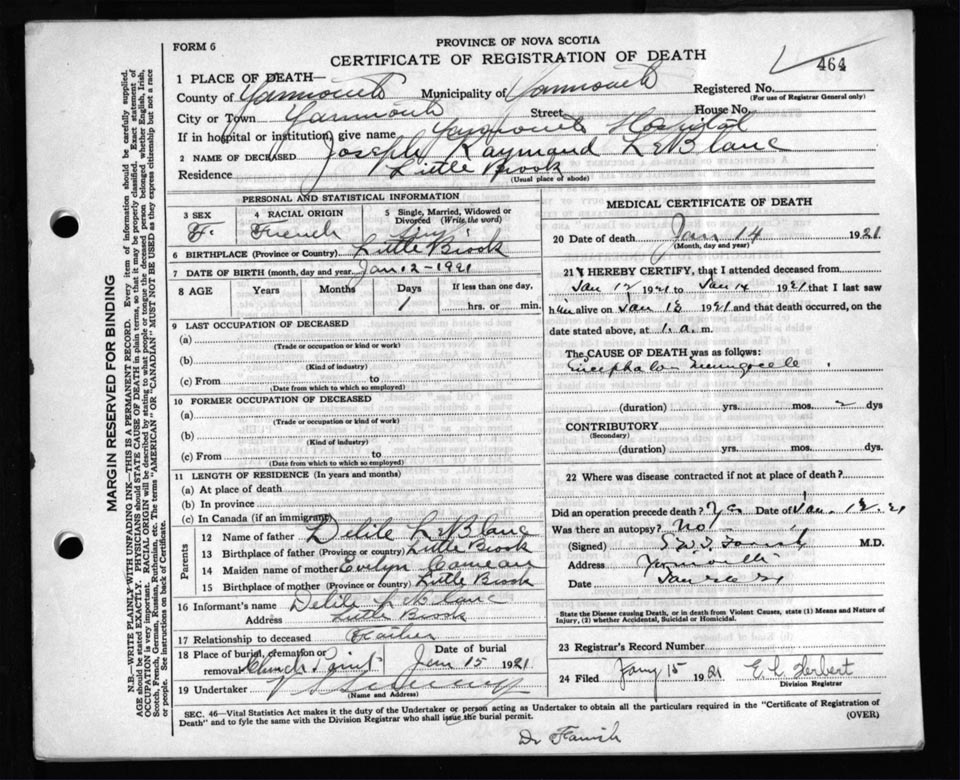 FORM 6
PROVINCE OF NOVA SCOTIA
CERTIFICATE OF REGISTRATION OF DEATH
464
1 PLACE OF DEATH—
County of Yarmouth Municipality of Yarmouth Registered No.
(For use of Registrar General only)
City or Town Yarmouth Street House No.
If in hospital or institution, give name Yarmouth Hospital
2 NAME OF DECEASED Joseph Raymond LeBlanc
Residence Little Brook
(Usual place of abode)
PERSONAL AND STATISTICAL INFORMATION
3 SEX 4 RACIAL ORIGIN 5 Single, Married, Widowed or Divorced (Write the word)
F. French
6 BIRTHPLACE (Province or Country) Little Brook
7 DATE OF BIRTH (month, day and year) Jan 12-1921
8 AGE Years Months Days If less than one day,
1 hrs. or min.
9 LAST OCCUPATION OF DECEASED
(a)
(Trade or occupation or kind or work)
(b)
(Kind of industry)
(c) From to
(Date from which to which so employed)
10 FORMER OCCUPATION OF DECEASED
(a)
(Trade or occupation or kind of work)
(b)
(Kind of industry)
(c) From to
(Date from which to which so employed)
11 LENGTH OF RESIDENCE (In years and months)
(a) At place of death
(b) In province
(c) In Canada (if an immigrant)
Parents
12 Name of father Delile LeBlanc
13 Birthplace of father (Province or country) Little Brook
14 Maiden name of mother Evelyn Comeau
15 Birthplace of mother (Province or country) Little Brook
16 Informant's name Delile LeBlanc
Address Little Brook
17 Relationship to deceased Father
18 Place of burial, cremation or removal Church Point Date of burial Jan 15 1921
19 Undertaker
(Name and Address)
MEDICAL CERTIFICATE OF DEATH
20 Date of death Jan 14 1921
(Month, day and year)
21 I HEREBY CERTIFY, that I attended deceased from
Jan 12 1921 to Jan 14 1921 that I last saw
him alive on Jan 13 1921 and that death occurred, on the
date stated above, at 1. a. m.
The CAUSE OF DEATH was as follows:
Encephalo Meningocele
(duration) yrs. mos. 2 dys
CONTRIBUTORY
(Secondary)
(duration) yrs. mos. dys.
22 Where was disease contracted if not at place of death?
Did an operation precede death? Yes Date of Jan. 21
Was there an autopsy? No
(Signed) M.D.
Address Yarmouth
Date
State the Disease causing Death, or in death from Violent Causes, state (1) Means and Nature of
Injury, (2) whether Accidental, Suicidal or Homicidal.
23 Registrar's Record Number
24 Filed Jany 15 1921 E. L. Herbert
Division Registrar
SEC. 46—Vital Statistics Act makes it the duty of the Undertaker or person acting as Undertaker to obtain all the particulars required in the "Certificate of Registration of
Death" and to fyle the same with the Division Registrar who shall issue the burial permit.
(OVER)
Dr Farish
MARGIN RESERVED FOR BINDING
N.B.—WRITE PLAINLY WITH UNFADING INK—THIS IS A PERMANENT RECORD. Every item of information should be carefully supplied.
AGE should be stated EXACTLY. PHYSICIANS should STATE CAUSE OF DEATH in plain terms, so that it may be properly classified. Exact statement of
OCCUPATION is very important. RACIAL ORIGIN will be described by stating to what people or tongue the deceased person belonged whether English, Irish,
Scotch, French, German, Russian, Ruthenian, etc. The terms "AMERICAN" OR "CANADIAN" MUST NOT BE USED as they express citizenship but not a race
or people. See instructions on back of Certificate.